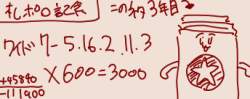 札幌記念
この紙3年目
ワイド7-5.16.2.11.3
×600=3000
+45890
-111900